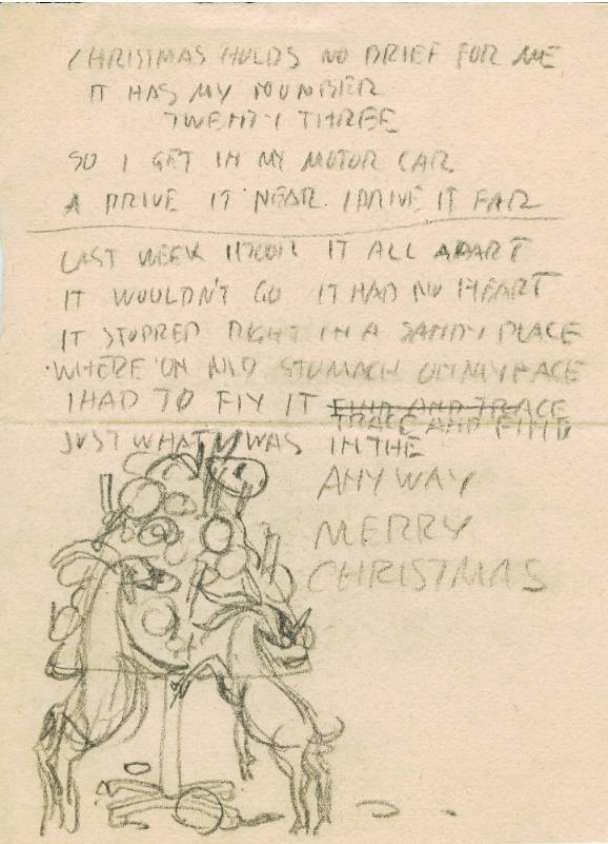 CHRISTMAS HOLDS NO BRIEF FOR ME
IT HAS MY NUMBER
TWENTY THREE
SO I GET IN MY MOTOR CAR
A DRIVE IT NEAR I DRIVE IT FAR
LAST WEEK I TOOK IT ALL APART
IT WOULDN'T GO IT HAD NO HEART
IT STOPPED RIGHT IN A SANDY PLACE
WHERE ON STOMACH ON MY FACE
I HAD TO FIX IT FIND AND TRACE
TRACE AND FIND
JUST WHAT WAS IN THE
ANYWAY
MERRY
CHRISTMAS